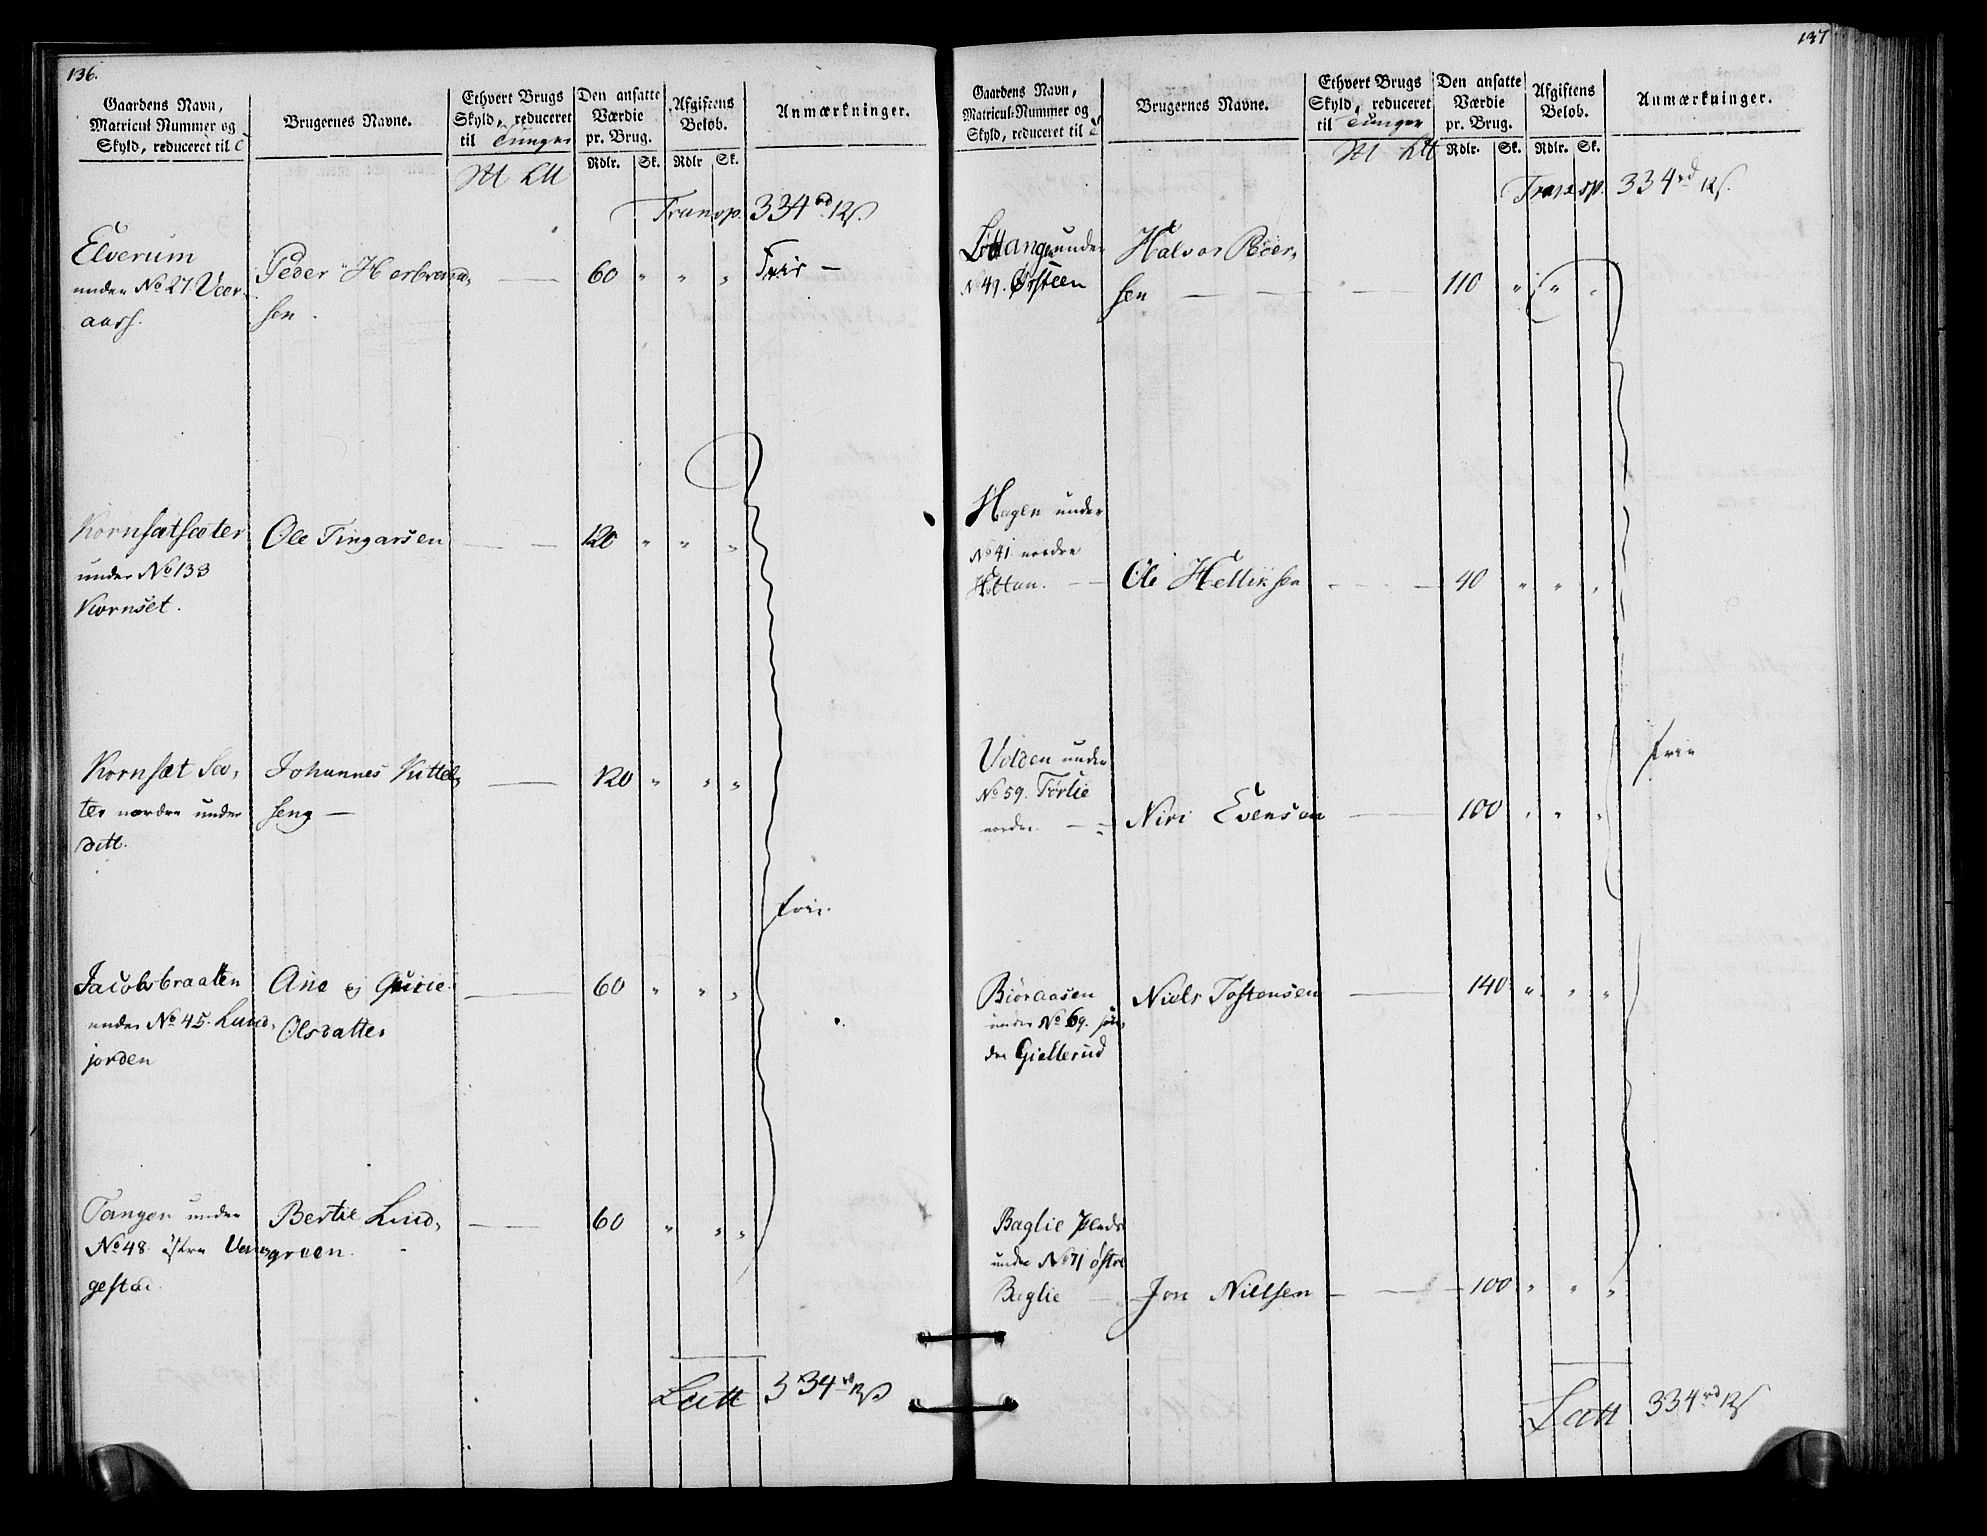 136.
Gaardens Navn,
Matricul Nummer og
Skyld, reduceret til
Brugernes Navne.
Ethvert Brugs
Skyld, reduceret
til Tunger
Den ansatte
Værdie
pr. Brug.
Afgiftens
Beløb.
Anmærkninger.
Rdlr. Sk. Rdlr Sk.
Transp. 334 rd 12 s.
Elverum
under No 27. Veer-
aass.
Peder Herbrand-
sen.
60 " " " Frie —
Kornsætsæter
under No 133
Kornset.
Ole Tingarsen
120 " " "
Kornsæt Sæ-
ter nordre under
ditt.
Johannes Kittel-
seng —
120 " " "
frie.
Jacobsbraaten
under No 45. Lund-
jorden
Ane og Guirie
Olsdatter
60 " " "
Tangen under
No 48. østre Ven-
gestad.
Bertie Lind-
green.
60 " " "
Latt 334 rd 12 s
137
Gaardens Navn,
Matricul-Nummer og
Skyld, reduceret til
Brugernes Navne.
Ethvert Brugs
Skyld, reduceret
til Tunger
Den ansatte
Værdie
pr. Brug.
Afgiftens
Beløb.
Anmærkninger.
Rdlr. Sk. Rdlr. Sk.
Transp. 334 rd 12 s.
under
Halvor Peer-
sen
110 " " "
Hagen under
No 41 nordre
Ole Helliksen
40 " " "
Volden under
No 59. Tørlie
nordre
Niri Evensen
100 " " "
frie
Biøraasen
under No 69. søn-
dre Giellerud
Niels Tostensen
140 " " "
Baglie Plads
under No 71 østre
Baglie
Jon Nielsen
100 " " "
Latt 334 rd 12 s